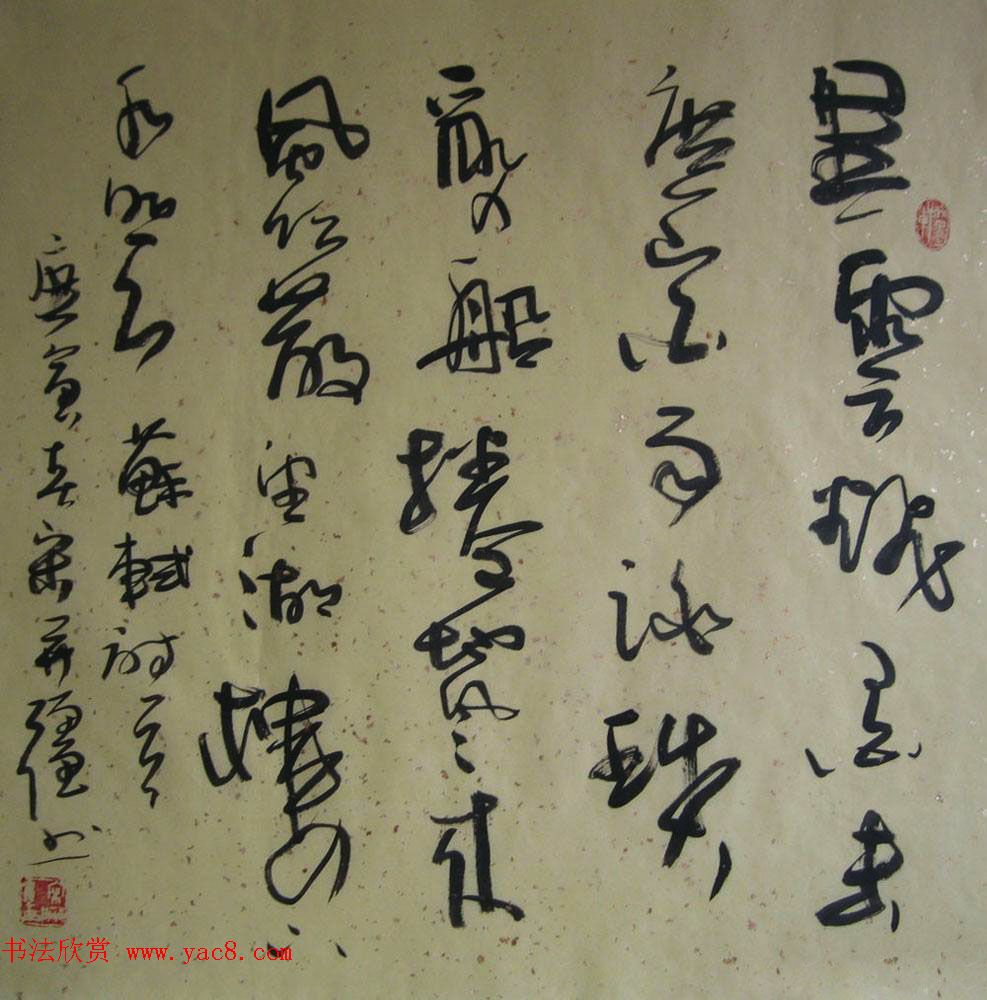 黑雲翻墨未
遮山白雨跳珠
亂入船捲地風來
吹散望湖樓下
水如天 蘇軾詩一首
庚寅春宋书
书法欣赏 www.yac8.com